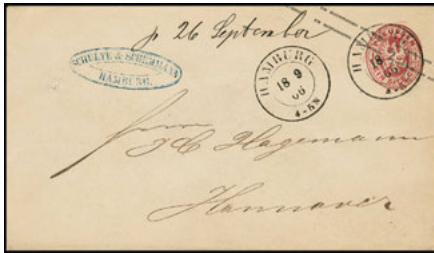 26 September
SCHULTE & SCHEMMANN
HAMBURG.
HAMBURG
18 9
66
4-5N
HAMBURG
18
66
J C Hagemann
Hannover